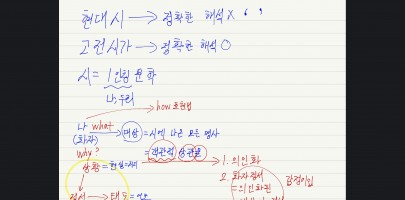 현대시 → 정확한 해석 X
고전시가 → 정확한 해석 O
시 = 1인칭 문학
나, 우리
how 표현법
나 what → 대상 = 시에 나온 모든 명사
(화자)
why?
= 객관적 상관물 → 1. 의인화
상황
2. 화자 정서 감정이입
= 의인화된
정서 → 태도